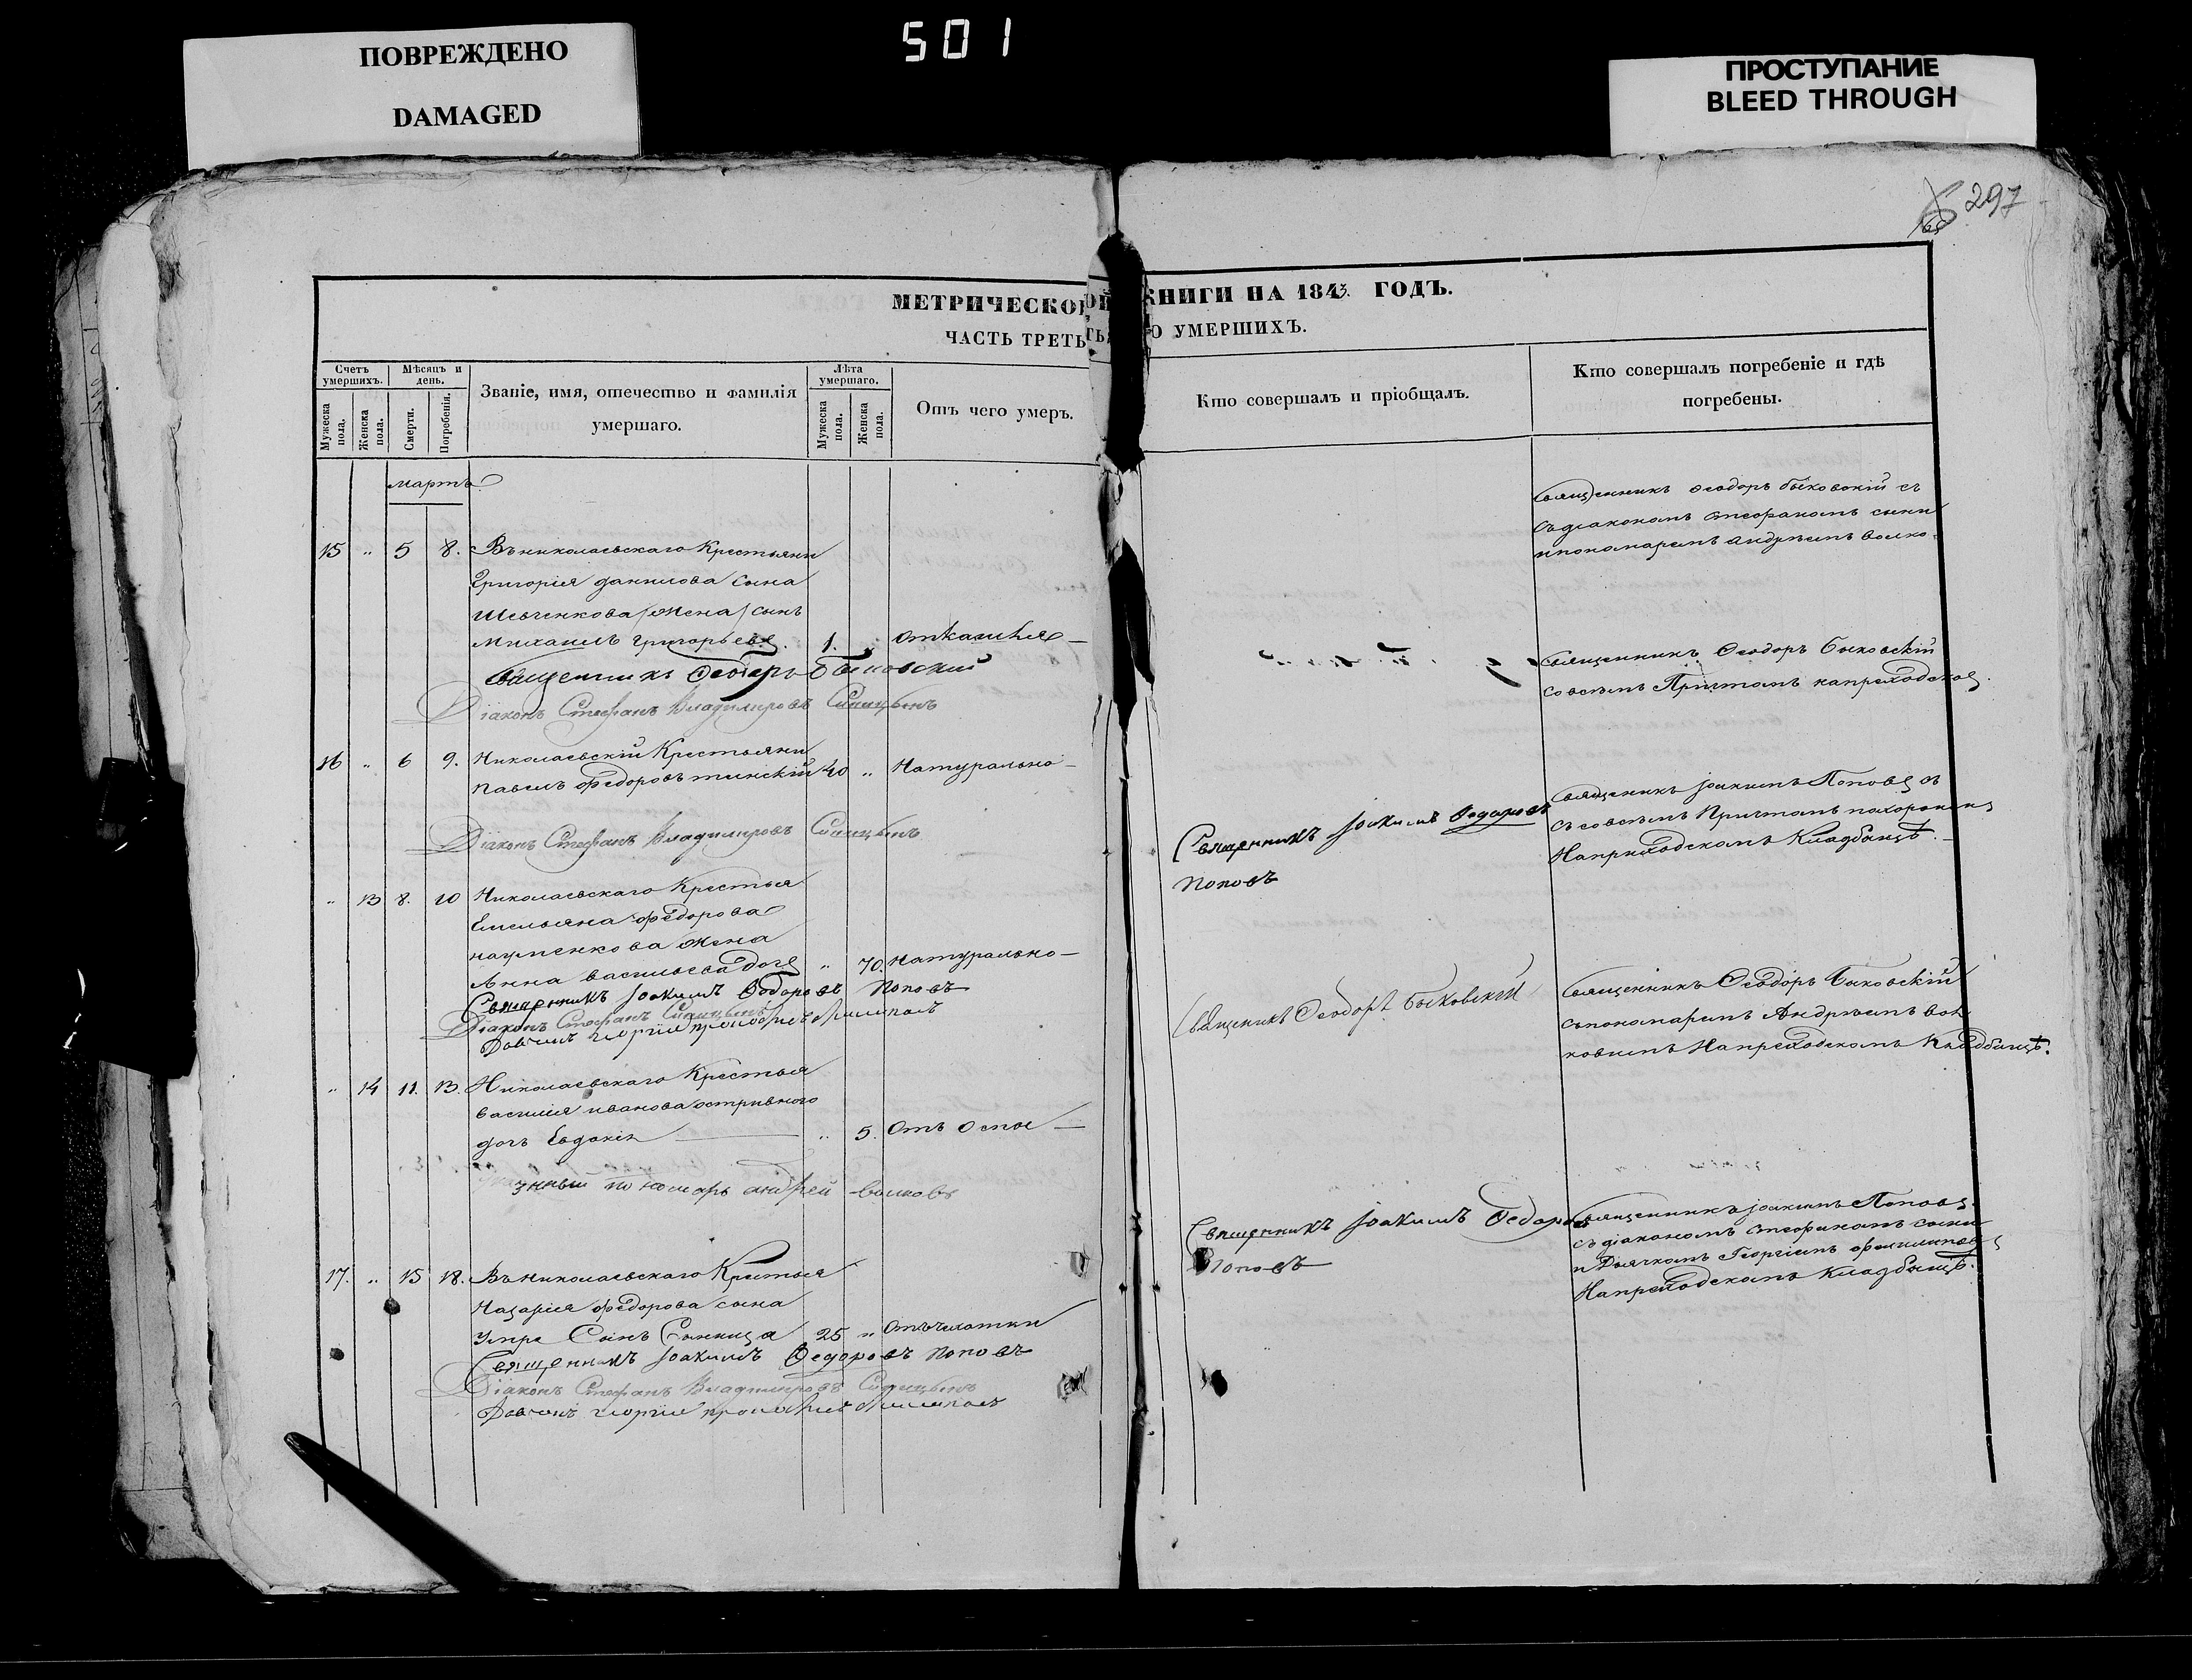 ПОВРЕЖДЕНО
DAMAGED
501
ПРОСТУПАНИЕ
BLEED THROUGH
297
МЕТРИЧЕСКОЙ КНИГИ НА 1843. ГОДЪ.
ЧАСТЬ ТРЕТЬЯ О УМЕРШИХЪ.
Счетъ умершихъ.
Мужеска пола.
Женска пола.
Мѣсяцъ и день.
Смерти.
Погребенія.
Званіе, имя, отечество и фамилія умершаго.
Лѣта умершаго.
Мужеска пола.
Женска пола.
Отъ чего умеръ.
Кто совершалъ и пріобщалъ.
Кто совершалъ погребеніе и гдѣ погребены.
мартъ.
15 " 5 8. Вниколаевскаго Крестьяни
Григорія данилова сына
Шевченкова /жена/ сынъ
Михаилъ григорьевъ. 1. " откашля
Священникъ Ѳеодоръ Быковский
Діаконъ Стефанъ Владимировъ Синицынъ
Священникъ Ѳеодоръ быковскій съ
діакономъ стефаномъ
ипономаремъ андреемъ волко
Священникъ Ѳеодоръ Быковскій
совсемъ Притомъ наприходское
16 " 6 9. Николаевскій Крестьяни
павелъ Федоровъ 40 " Натурально
Діаконъ Стефанъ Владимировъ Синицынъ
Священникъ Іоакимъ Ѳедоровъ
Поповъ
Священникъ іоакимъ Поповъ
съ совсемъ Притомъ похоронен
Наприходскомъ Кладбищѣ.
" 13 8. 10 Николаевскаго Крестья
Емельяна федорова
науменкова жена
Анна васильева " 70. Натурально
Священникъ Іоакимъ Ѳедоровъ Поповъ
Діаконъ Стефанъ Синицынъ
Священникъ Ѳеодоръ Быковскій
Священникъ Ѳеодоръ Быковскій
съпономаремъ Андреемъ вол
ковымъ Наприходскомъ Кладбищѣ.
" 14 11. 13. Николаевскаго Крестья
василія иванова остривного
дочь Евдокія " 5. Отъ Оспы
пономарь андрей волковъ
17. " 15 18. Вниколаевскаго Крестья
Назарія федорова сына
Сынъ 25 " Отъчихотки
Священникъ Іоакимъ Ѳедоровъ Поповъ
Діаконъ Стефанъ Владимировъ Синицынъ
Священникъ Іоакимъ Ѳедоров
Поповъ
Священникъ іоакимъ Поповъ
съ діакономъ стефаномъ
и Дьячкомъ Георгіемъ
Наприходскомъ Кладбищѣ.